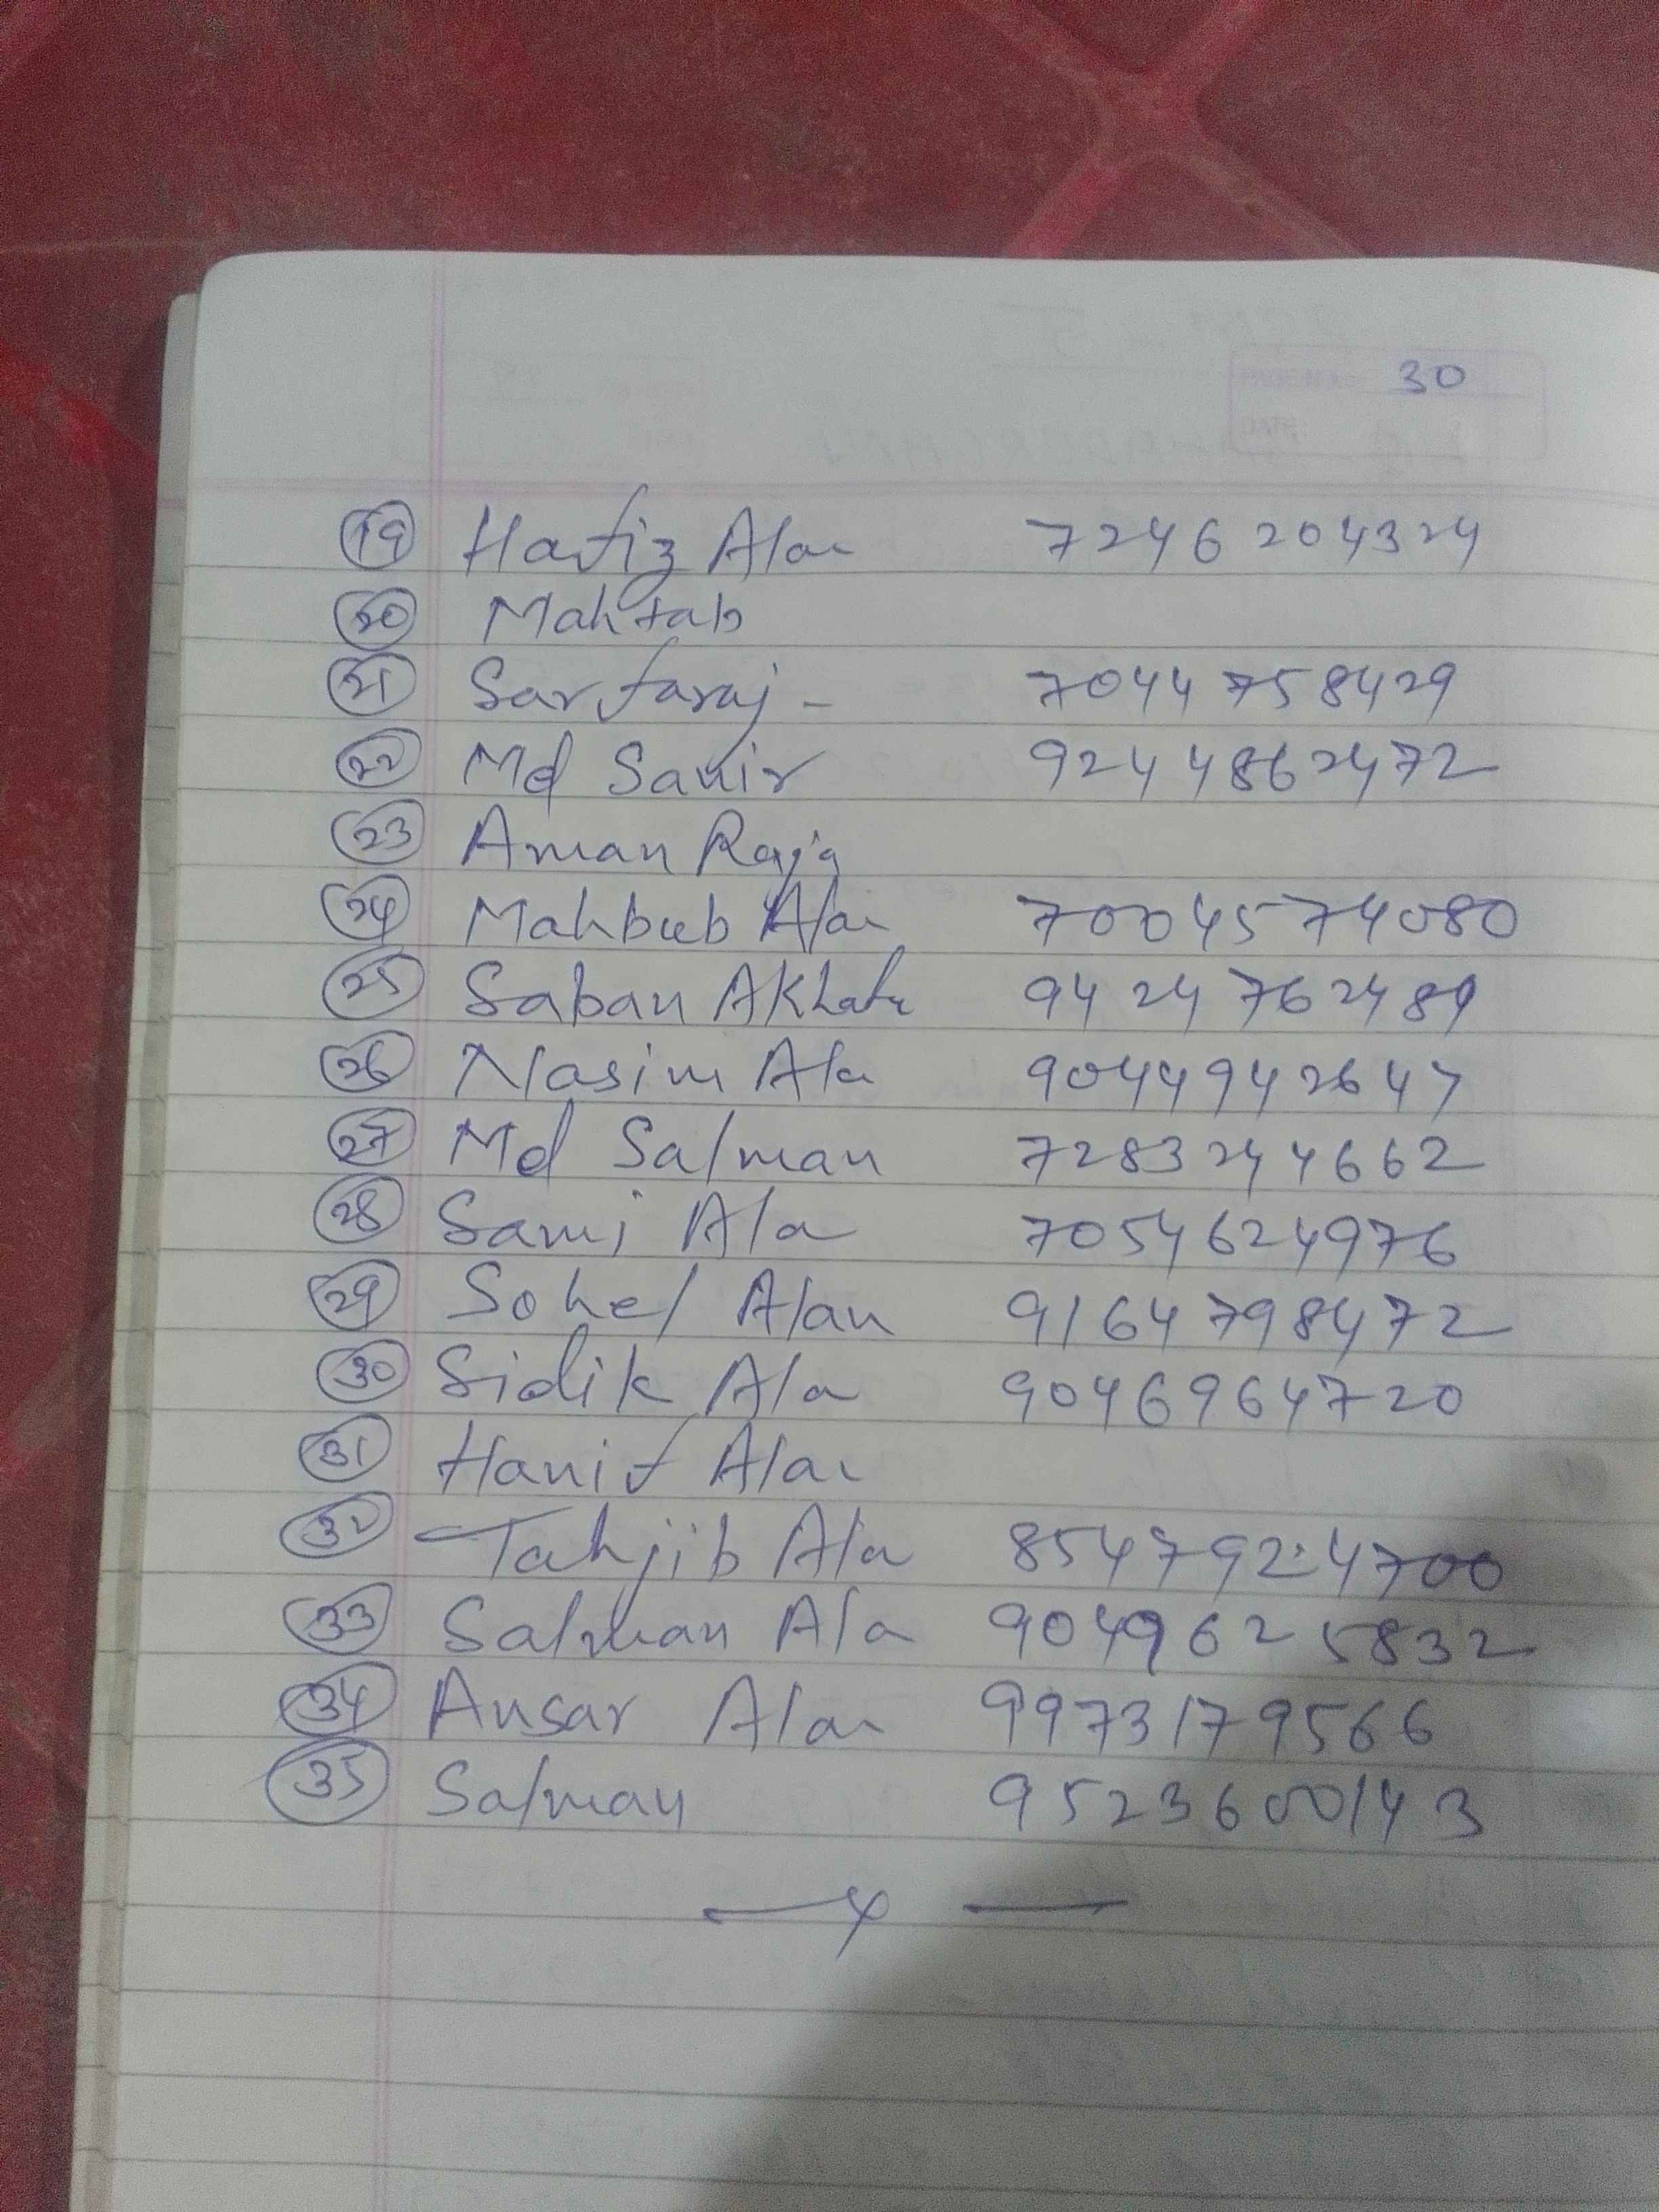 30
19 Hafiz Alam 7246204324
20 Mahtab
21 Sarfaraj - 7044758429
22 Md Sanir 9244862472
23 Aman Raja
24 Mahbub Alam 7004574080
25 Saban Akhatr 9424762489
26 Nasim Ala 9044942647
27 Md Salman 7283244662
28 Sami Ala 7054624976
29 Sohel Alam 9164798472
30 Sidik Ala 9046964720
31 Hanif Alam
32 Tahjib Ala 8547924700
33 Salman Ala 9049625832
34 Ansar Alam 9973179566
35 Salman 9523600143